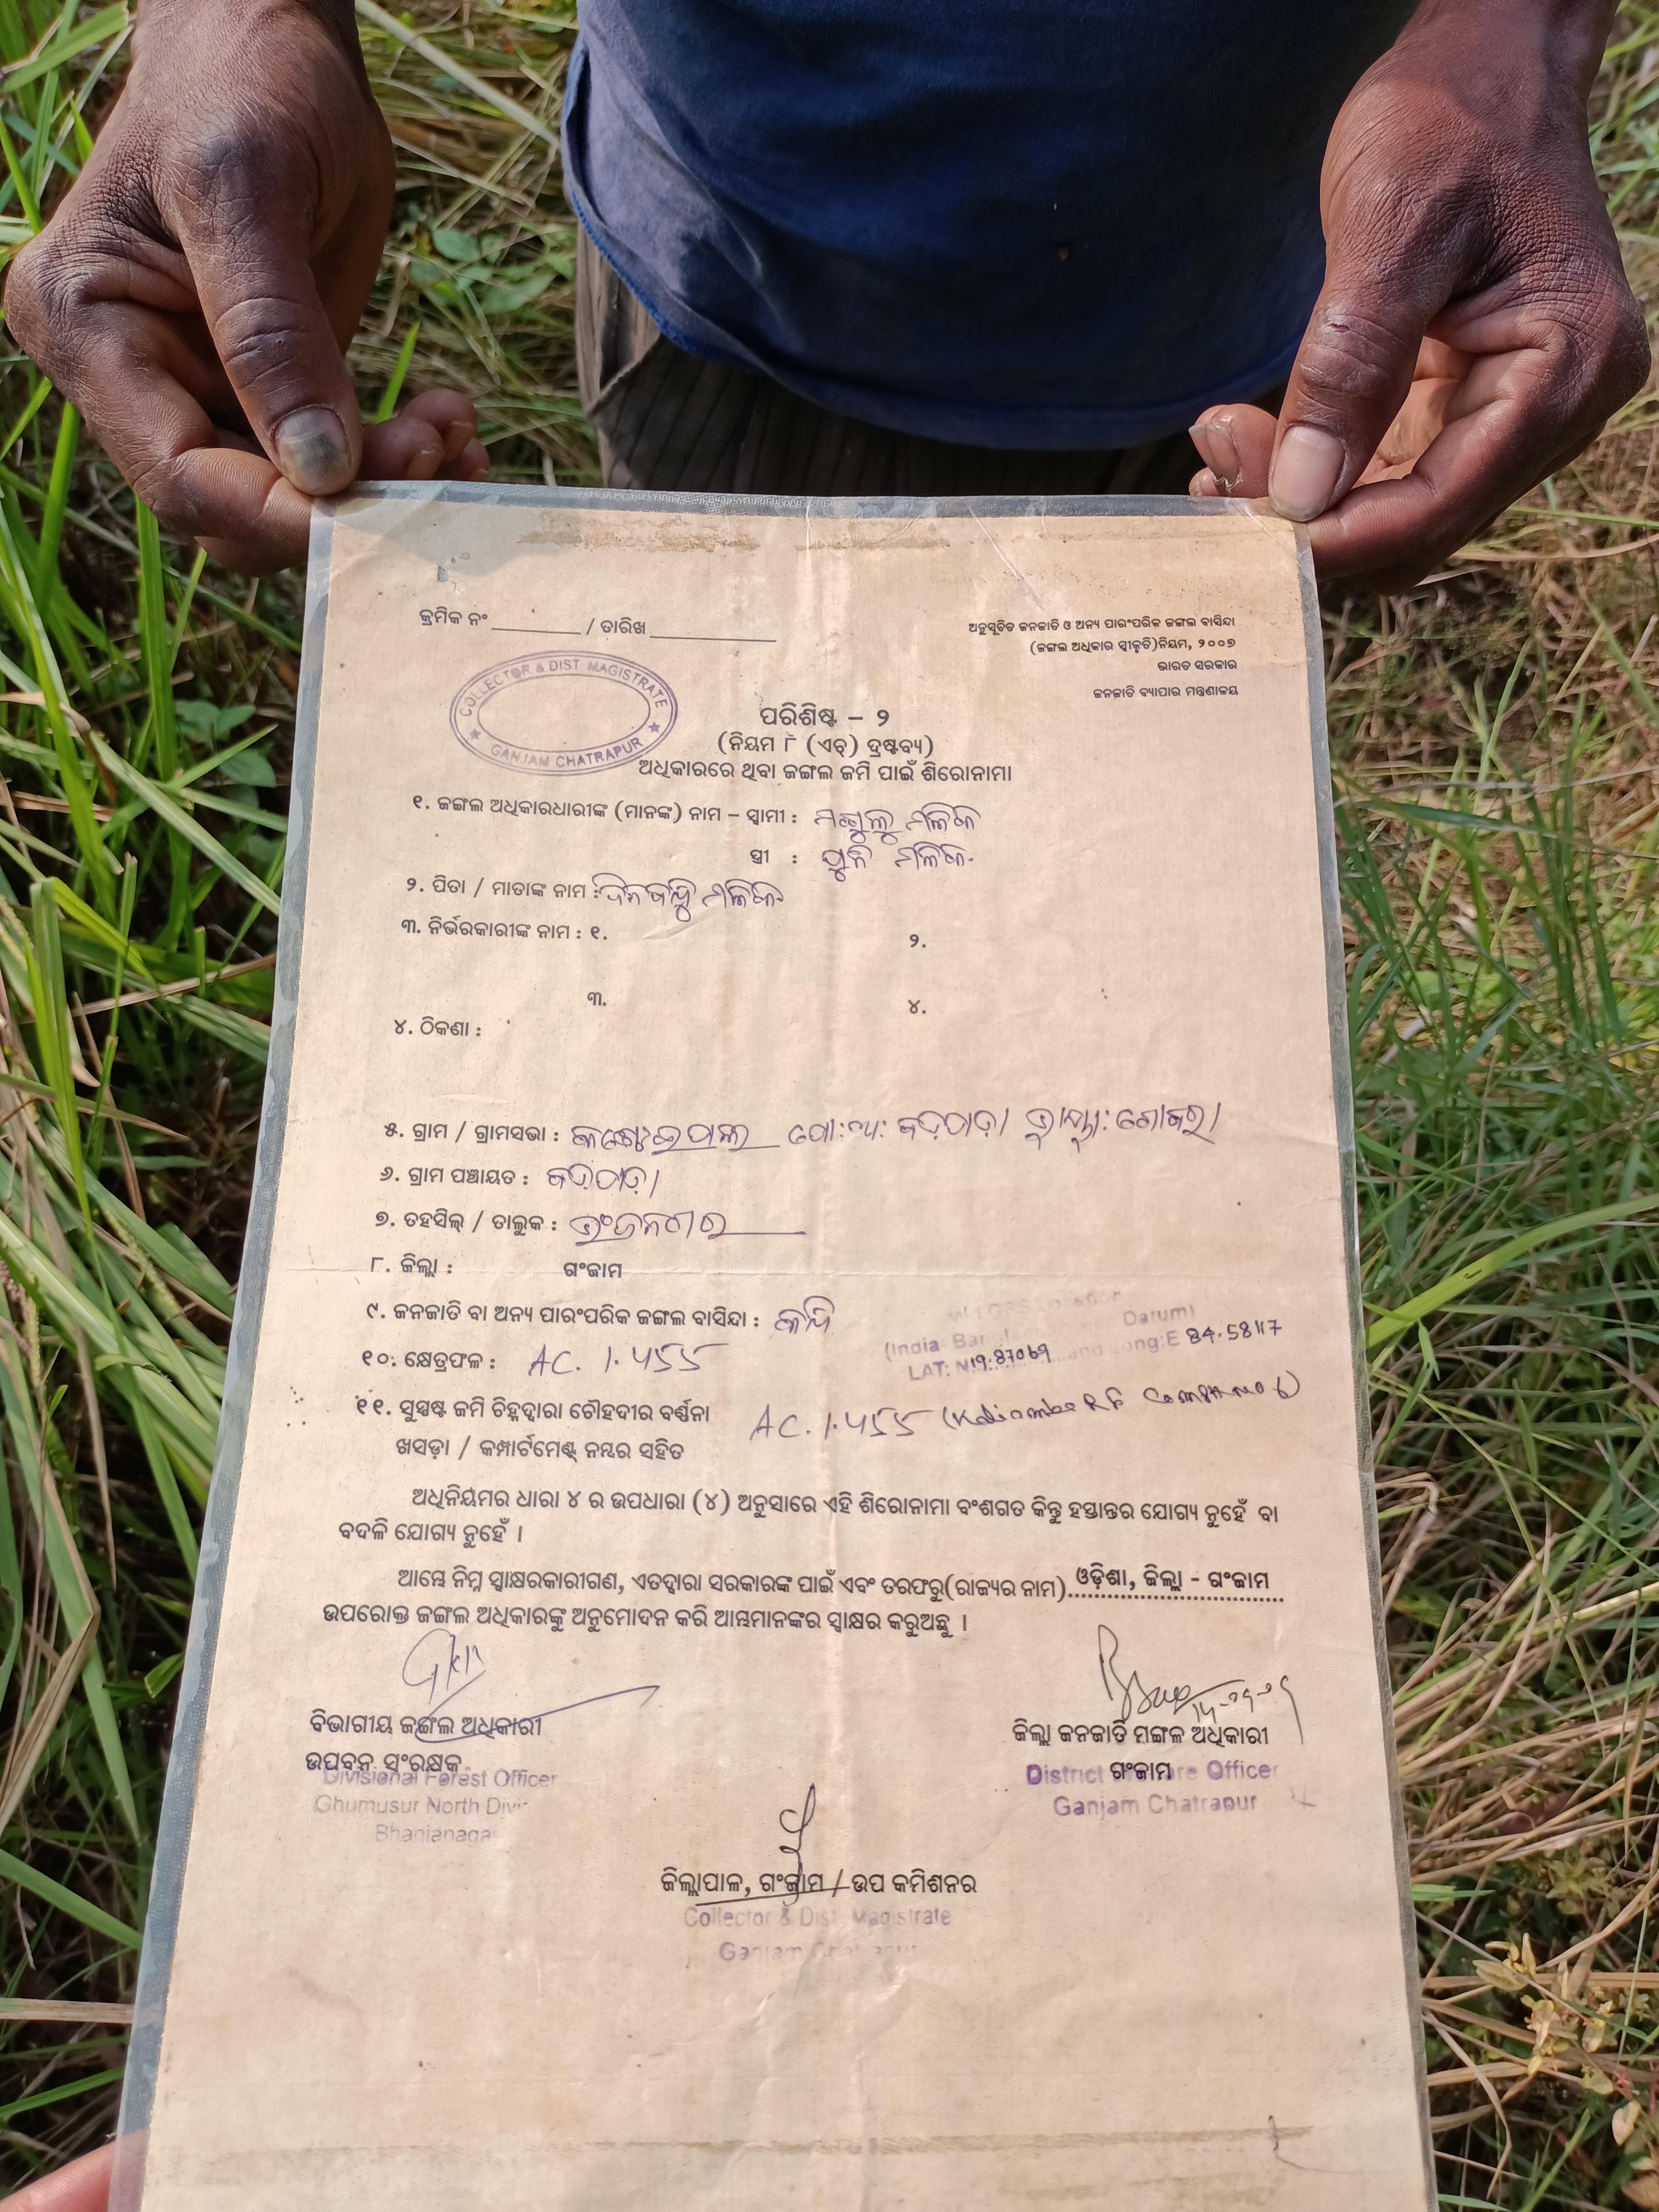 କ୍ରମିକ ନଂ / ତାରିଖ
ଅନୁସୂଚିତ ଜନଜାତି ଓ ଅନ୍ୟ ପାରଂପରିକ ଜଙ୍ଗଲ ବାସିନ୍ଦା
(ଜଙ୍ଗଲ ଅଧିକାର ସ୍ୱୀକୃତି)ନିୟମ, ୨୦୦୭
ଭାରତ ସରକାର
ଜନଜାତି ବ୍ୟାପାର ମନ୍ତ୍ରଣାଳୟ
COLLECTOR & DIST MAGISTRATE
GANJAM CHATRAPUR
ପରିଶିଷ୍ଟ – ୨
(ନିୟମ ୮ (ଏଚ୍) ଦ୍ରଷ୍ଟବ୍ୟ)
ଅଧିକାରରେ ଥିବା ଜଙ୍ଗଲ ଜମି ପାଇଁ ଶିରୋନାମା
୧. ଜଙ୍ଗଲ ଅଧିକାରଧାରୀଙ୍କ (ମାନଙ୍କ) ନାମ – ସ୍ୱାମୀ : ମଲିକ
ସ୍ତ୍ରୀ : ମଲିକ
୨. ପିତା / ମାତାଙ୍କ ନାମ : ଦିନବନ୍ଧୁ ମଲିକ
୩. ନିର୍ଭରକାରୀଙ୍କ ନାମ : ୧. ୨.
୩. ୪.
୪. ଠିକଣା :
୫. ଗ୍ରାମ / ଗ୍ରାମସଭା :
୬. ଗ୍ରାମ ପଞ୍ଚାୟତ : ବଡ଼ପାଡ଼ା
୭. ତହସିଲ୍ / ତାଲୁକ : ଭଂଜନଗର
୮. ଜିଲ୍ଲା : ଗଂଜାମ
୯. ଜନଜାତି ବା ଅନ୍ୟ ପାରଂପରିକ ଜଙ୍ଗଲ ବାସିନ୍ଦା : କନ୍ଧ
Datum)
(India
LAT: N 19.87069 and Long:E 84.58117
୧୦. କ୍ଷେତ୍ରଫଳ : AC. 1.455
୧୧. ସୁସ୍ପଷ୍ଟ ଜମି ଚିହ୍ନଦ୍ୱାରା ଚୌହଦୀର ବର୍ଣ୍ଣନା AC. 1.455
ଖସଡ଼ା / କମ୍ପାର୍ଟମେଣ୍ଟ୍ ନମ୍ବର ସହିତ
ଅଧିନିୟମର ଧାରା ୪ ର ଉପଧାରା (୪) ଅନୁସାରେ ଏହି ଶିରୋନାମା ବଂଶଗତ କିନ୍ତୁ ହସ୍ତାନ୍ତର ଯୋଗ୍ୟ ନୁହେଁ ବା
ବଦଳି ଯୋଗ୍ୟ ନୁହେଁ ।
ଆମ୍ଭେ ନିମ୍ନ ସ୍ୱାକ୍ଷରକାରୀଗଣ, ଏତଦ୍ଦ୍ୱାରା ସରକାରଙ୍କ ପାଇଁ ଏବଂ ତରଫରୁ(ରାଜ୍ୟର ନାମ) ଓଡ଼ିଶା, ଜିଲ୍ଲା - ଗଂଜାମ
ଉପରୋକ୍ତ ଜଙ୍ଗଲ ଅଧିକାରଙ୍କୁ ଅନୁମୋଦନ କରି ଆମ୍ଭମାନଙ୍କର ସ୍ୱାକ୍ଷର କରୁଅଛୁ ।
ବିଭାଗୀୟ ଜଙ୍ଗଲ ଅଧିକାରୀ
ଉପବନ ସଂରକ୍ଷକ
Divisional Forest Officer
Ghumusur North
ଜିଲ୍ଲା ଜନଜାତି ମଙ୍ଗଳ ଅଧିକାରୀ
ଗଂଜାମ
District Officer
Ganjam Chatrapur
ଜିଲ୍ଲାପାଳ, ଗଂଜାମ / ଉପ କମିଶନର
Collector & Dist Magistrate
Ganjam